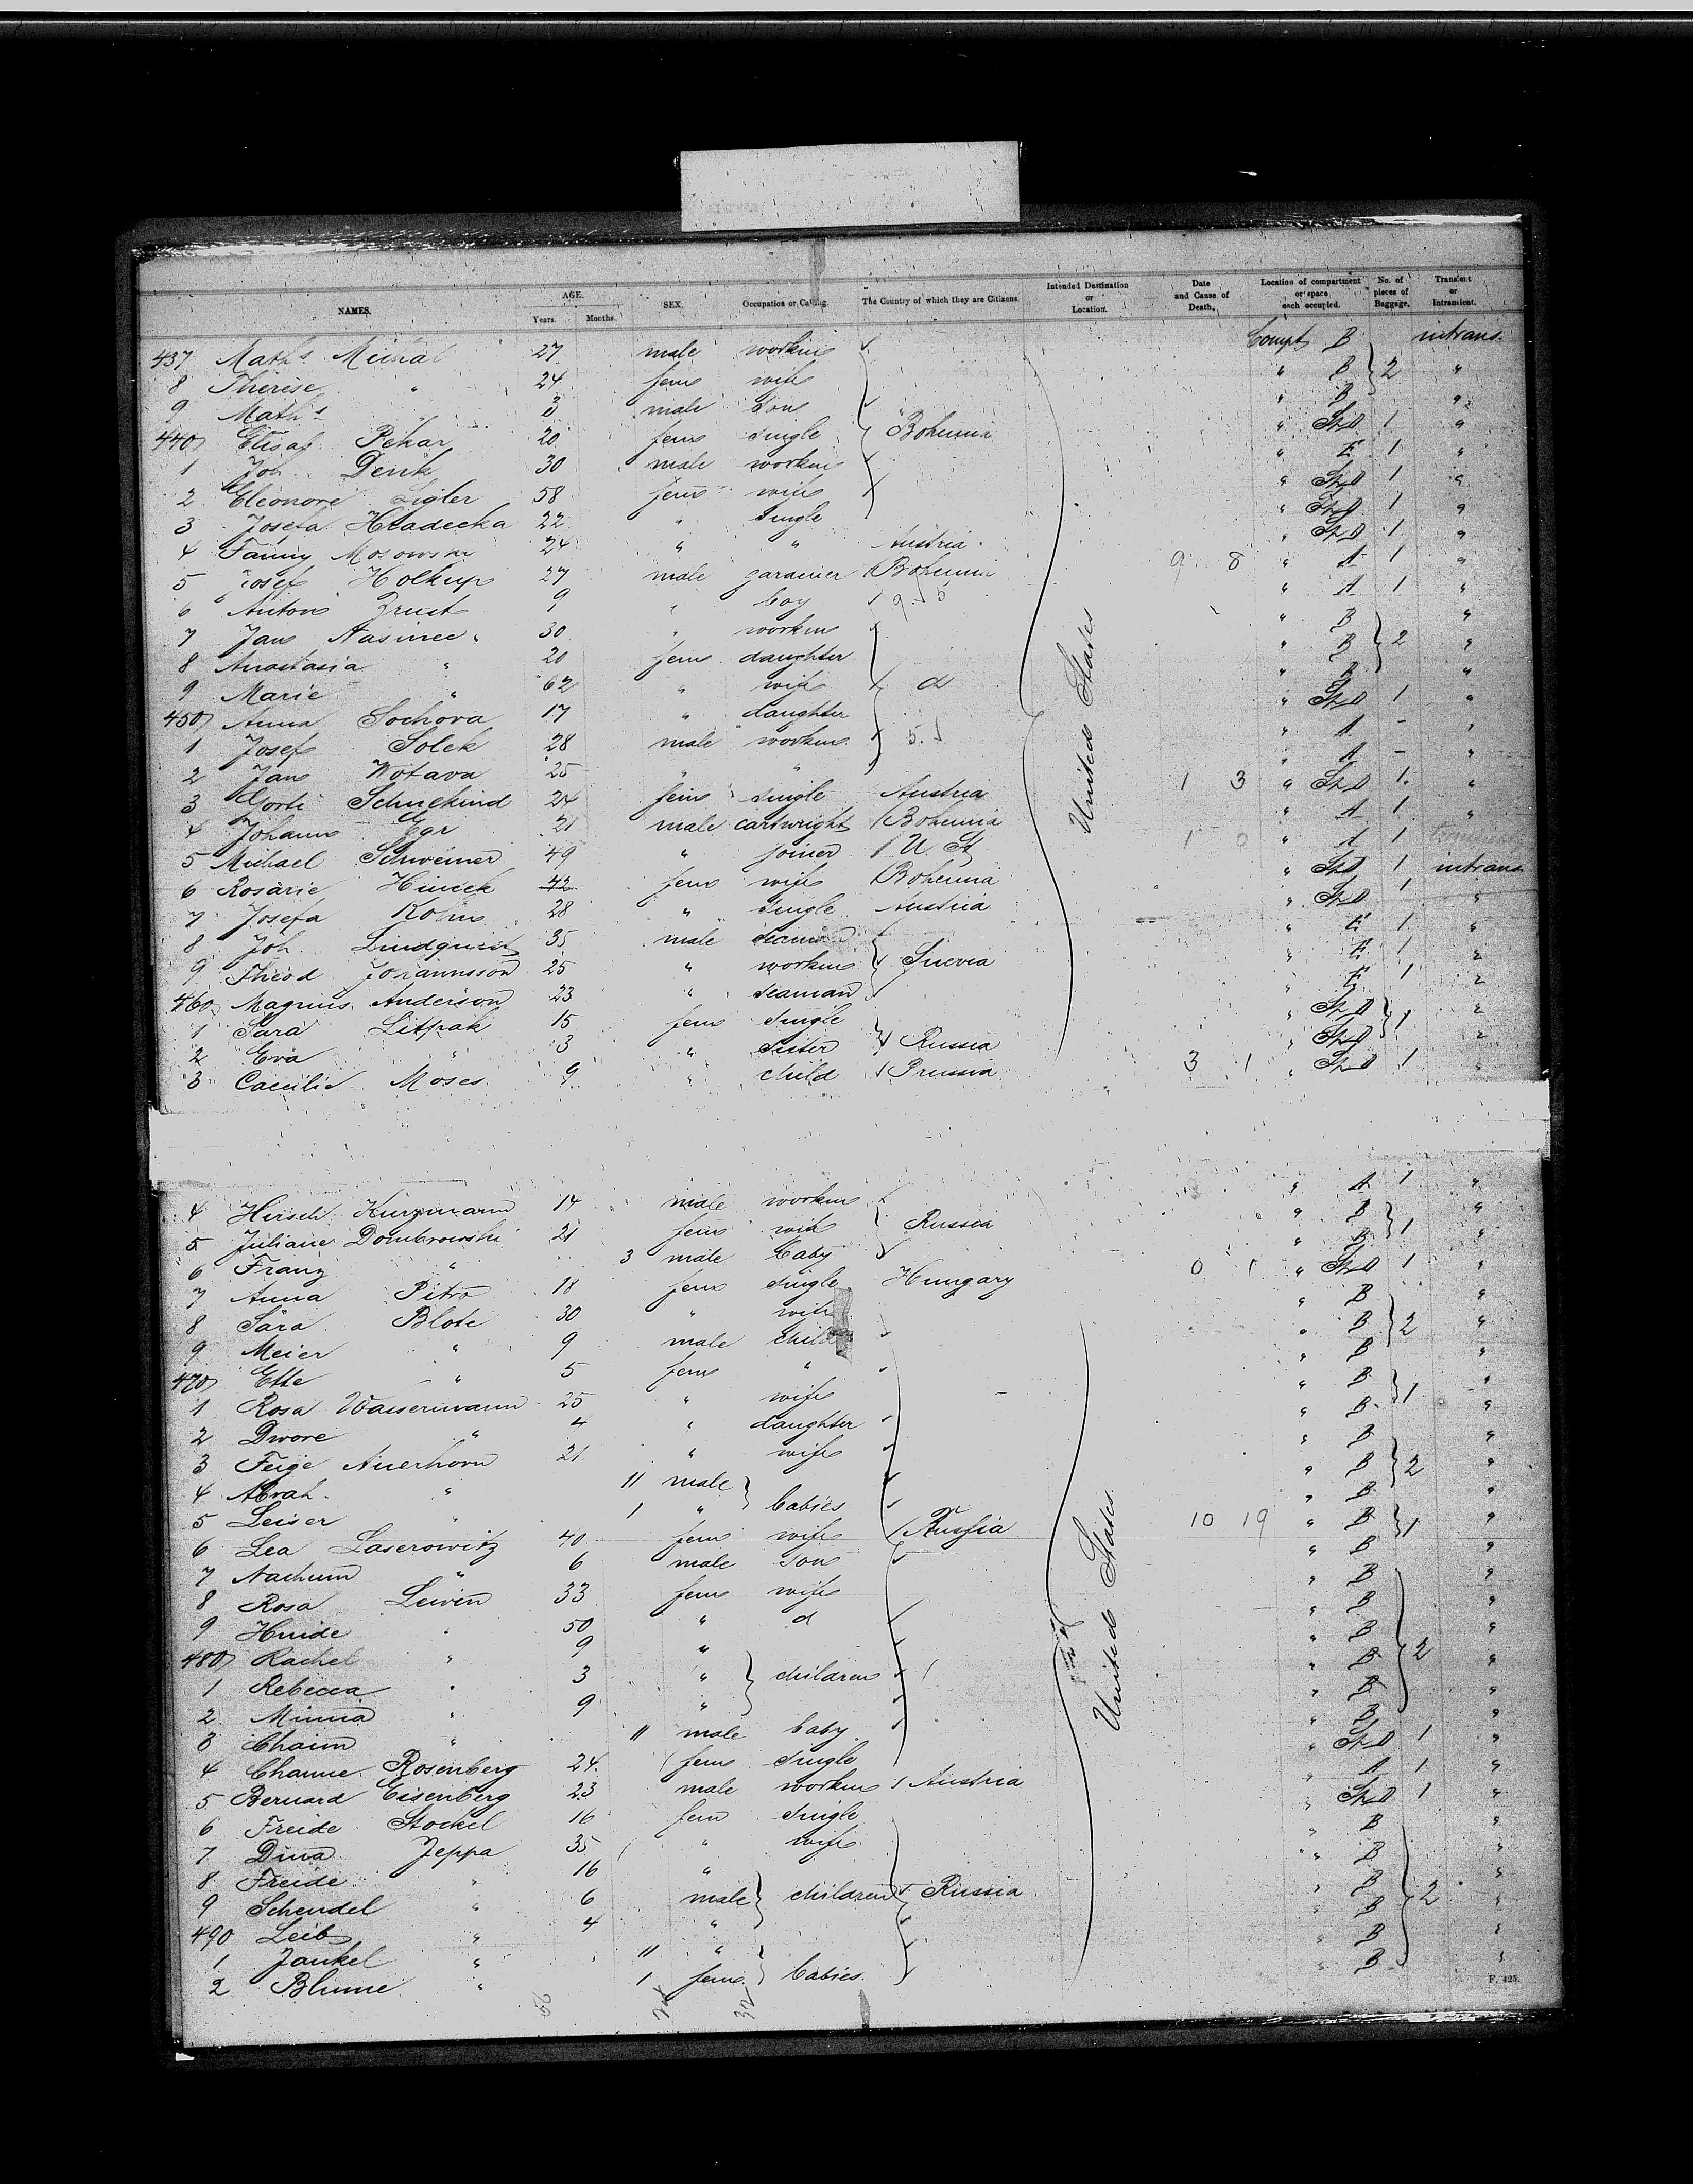 NAMES. AGE. Years. Months. SEX. Occupation or Calling. The Country of which they are Citizens. Intended Destination or Location. Date and Cause of Death. Location of compartment or space each occupied. No. of pieces of Baggage. Transient or Intransient.
437 Maths Michal 27 male workm Compt B intrans.
8 Therese " 24 fem wife " B 2 "
9 Maths " 3 male son " B "
440 Elisab. Pekar 20 fem single Bohemia " St.D 1 "
1 Joh. Denk 30 male workm " E 1 "
2 Eleonore Sigler 58 fem wife " St.D 1 "
3 Josefa Hladecka 22 " single " St.D 1 "
4 Fanny 24 " " Austria " St.D 1 "
5 Josef Holkup 27 male gardner Bohemia 9 8 " A 1 "
6 Anton 9 " boy 9. 5 " A 1 "
7 Jan Nasinec 30 " workm " B "
8 Anastasia " 20 fem daughter " B 2 "
9 Marie " 62 " wife d " B "
450 Anna Sochova 17 " daughter " St.D 1 "
1 Josef Solek 28 male workm. 5. " A - "
2 Jan Wotava 25 " " " A - "
3 Schuekind 24 fem single Austria 1 3 " St.D 1. "
4 Johann Egr 21 male cartwright Bohemia " A 1 "
5 Michael Schweiner 49 " joiner U. St. 1 0 " A 1
6 Rosarie 42 fem wife Bohemia " St.D 1 intrans
7 Josefa Kohn 28 " single Austria " St.D 1 "
8 Joh. Lindquist 35 male seaman " E 1 "
9 Theod Johannsson 25 " workm Suevia " E 1 "
460 Magnus Anderson 23 " seaman " E 1 "
1 Sara Litpak 15 fem single " St.D 1 "
2 Eva " 3 " sister Russia " St.D "
3 Caecilie Moses 9 " child Prussia 3 1 " St.D 1 "
4 Hirsch Kurzmann 14 male workm " A 1 "
5 Juliane Dombrowski 21 fem wife Russia " B 1 "
6 Franz " 3 male baby " B "
7 Anna Pitro 18 fem single Hungary 0 1 " St.D 1 "
8 Sara Blote 30 " wife " B "
9 Meier " 9 male child " B 2 "
470 Ette " 5 fem " " B "
1 Rosa Wassermann 25 " wife " B 1 "
2 Dwore " 4 " daughter " B "
3 Feige Auerhorn 21 " wife " B "
4 Abrah. " 11 male babies " B 2 "
5 Leiser " 1 " " B "
6 Lea Laserowitz 40 fem wife Russia 10 19 " B 1 "
7 Nachum " 6 male son " B "
8 Rosa Lewin 33 fem wife " B "
9 Hinde " 50 " d " B "
480 Rachel " 9 " " B 2 "
1 Rebecca " 3 " children " B "
2 Minna " 9 " " B "
3 Chaim " 11 male baby " B "
4 Channe Rosenberg 24. fem single " St.D 1 "
5 Bernard Eisenberg 23 male workm Austria " A 1 "
6 Freide Stockel 16 fem single " St.D 1 "
7 Dina Jeppa 35 " wife " B "
8 Freide " 16 " " B "
9 Schendel " 6 male children Russia " B 2 "
490 Leib " 4 " " B "
1 Jankel " 11 " " B "
2 Blume " 1 fem. babies. " B "
United States
United States.
F. 425.
32